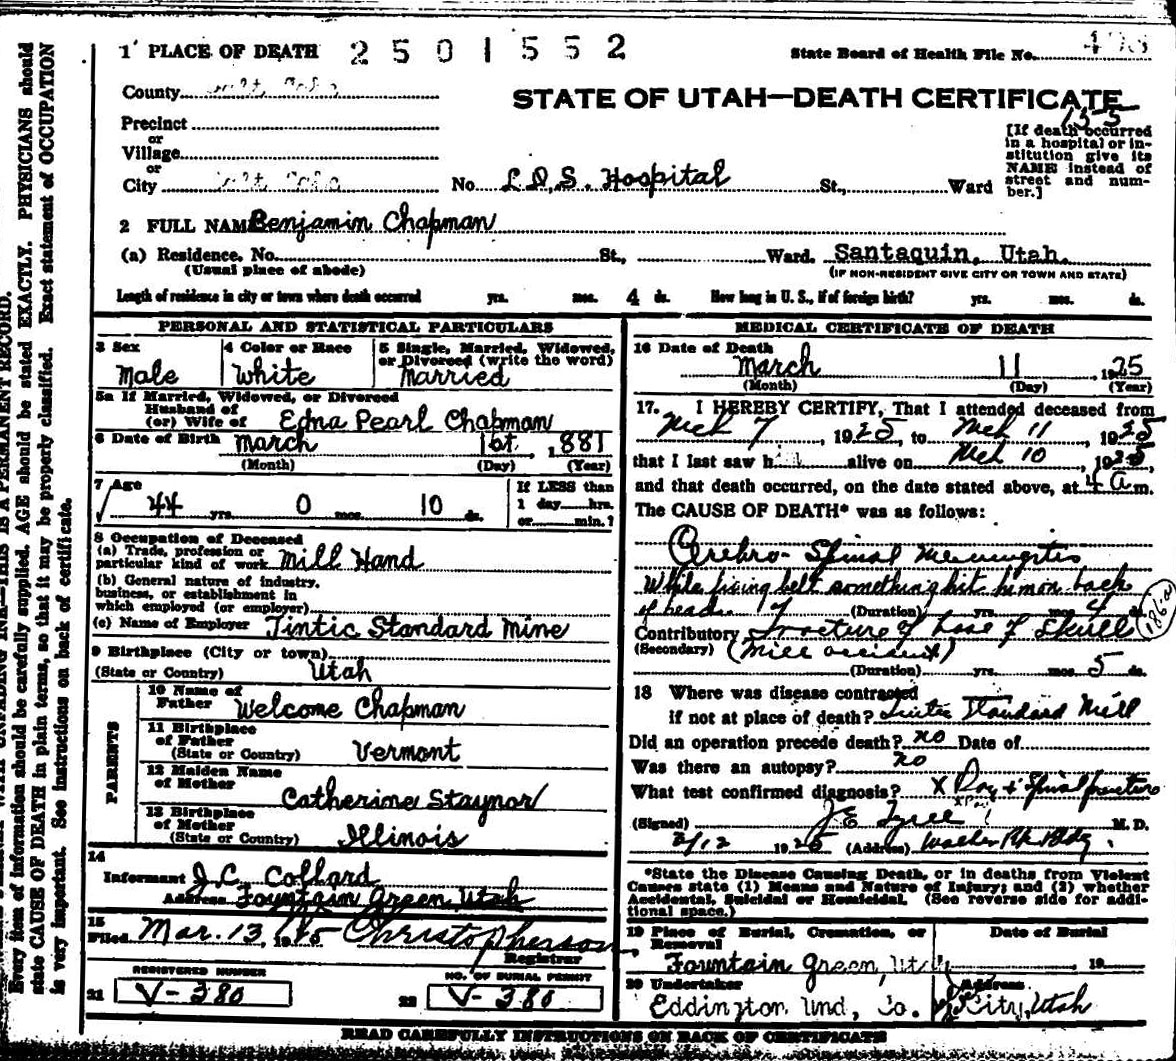 1 PLACE OF DEATH 2501552 State Board of Health File No.
County Salt Lake
STATE OF UTAH—DEATH CERTIFICATE
Precinct
or
Village
or
City Salt Lake No. L.D.S. Hospital St., Ward
[If death occurred
in a hospital or in-
stitution give its
NAME instead of
street and num-
ber.]
2 FULL NAME Benjamin Chapman
(a) Residence. No. St., Ward. Santaquin, Utah.
(Usual place of abode) (IF NON-RESIDENT GIVE CITY OR TOWN AND STATE)
Length of residence in city or town where death occurred yrs. mos. 4 ds. How long in U. S., if of foreign birth? yrs. mos. ds.
PERSONAL AND STATISTICAL PARTICULARS
3 Sex 4 Color or Race 5 Single, Married, Widowed,
or Divorced (write the word)
Male White Married
5a If Married, Widowed, or Divorced
Husband of
(or) Wife of Edna Pearl Chapman
6 Date of Birth March 1st, 1881
(Month) (Day) (Year)
7 Age If LESS than
44 yrs. 0 mos. 10 ds. 1 day hrs.
or min.?
8 Occupation of Deceased
(a) Trade, profession or
particular kind of work Mill Hand
(b) General nature of industry,
business, or establishment in
which employed (or employer)
(c) Name of Employer Tintic Standard Mine
9 Birthplace (City or town)
(State or Country) Utah
PARENTS
10 Name of
Father Welcome Chapman
11 Birthplace
of Father
(State or Country) Vermont
12 Maiden Name
of Mother
Catherine Staynor
13 Birthplace
of Mother
(State or Country) Illinois
14
Informant J.C. Collard
Address Fountain Green, Utah
15
Filed Mar. 13, 1925 Christopherson
Registrar
REGISTERED NUMBER NO. OF BURIAL PERMIT
21 V-380 22 V-380
MEDICAL CERTIFICATE OF DEATH
16 Date of Death
March 11, 1925
(Month) (Day) (Year)
17. I HEREBY CERTIFY, That I attended deceased from
Mch 7, 1925, to Mch 11, 1925
that I last saw him alive on Mch 10, 1925,
and that death occurred, on the date stated above, at 4 a m.
The CAUSE OF DEATH* was as follows:
Cerebro-Spinal Meningitis
While fixing belt something hit him on back
of head. (Duration) yrs. mos. 4 ds.
Contributory Fracture of base of Skull
(Secondary) (Mill accident)
(Duration) yrs. mos. 5 ds.
18 Where was disease contracted
if not at place of death? Tintic Standard Mill
Did an operation precede death? no Date of
Was there an autopsy? no
What test confirmed diagnosis? X Ray + Spinal puncture
(Signed) M. D.
3/12 1925 (Address) Walker Bk Bldg.
*State the Disease Causing Death, or in deaths from Violent
Causes state (1) Means and Nature of Injury; and (2) whether
Accidental, Suicidal or Homicidal. (See reverse side for addi-
tional space.)
19 Place of Burial, Cremation, or Date of Burial
Removal
Fountain Green, Utah 19
20 Undertaker Address
Eddington Und. Co. City, Utah
READ CAREFULLY INSTRUCTIONS ON BACK OF CERTIFICATE
THIS IS A PERMANENT RECORD.
Every item of information should be carefully supplied. AGE should be stated EXACTLY. PHYSICIANS should
state CAUSE OF DEATH in plain terms, so that it may be properly classified. Exact statement of OCCUPATION
is very important. See instructions on back of certificate.